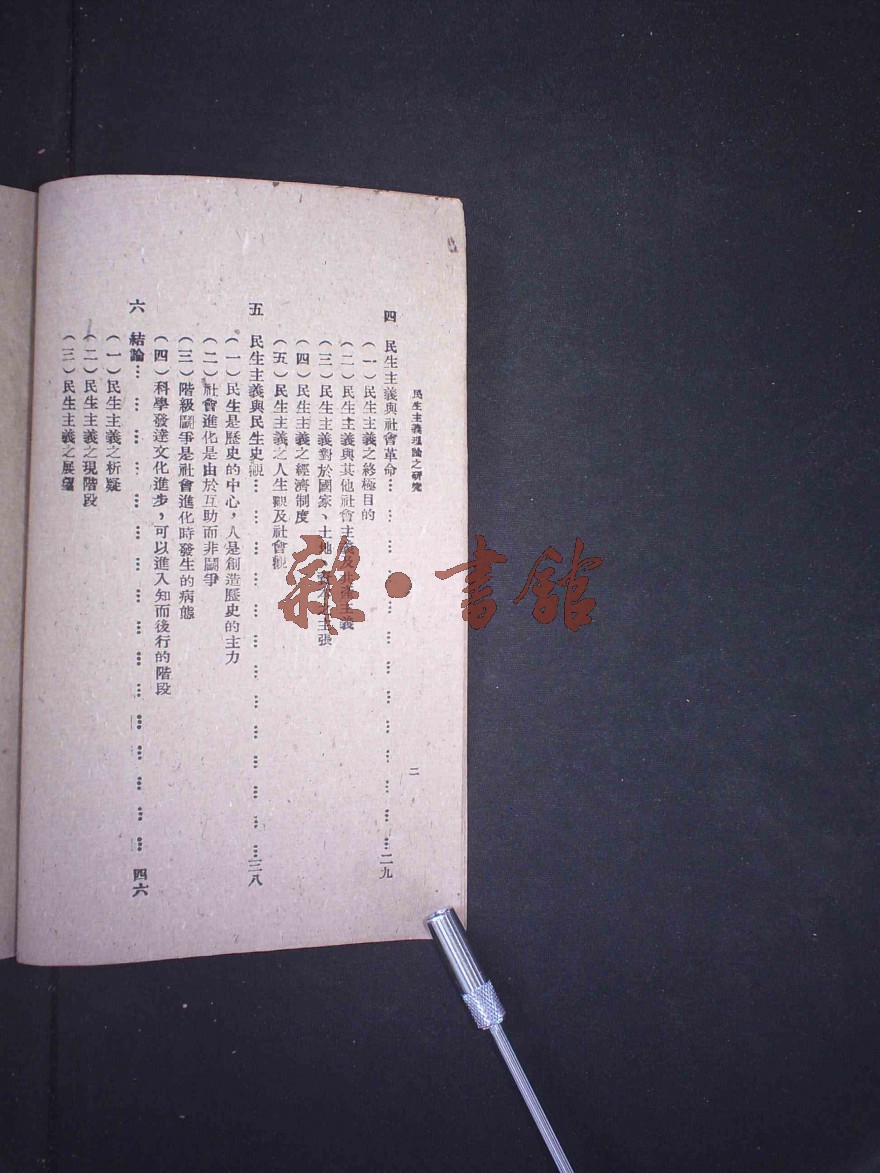 民生主義理論之研究
二
四 民生主義與社會革命……二九
(一)民生主義之終極目的
(二)民生主義與其他社會主義及共產主義
(三)民生主義對於國家、土地、資本之主張
(四)民生主義之經濟制度
(五)民生主義之人生觀及社會觀
五 民生主義與民生史觀……三八
(一)民生是歷史的中心,人是創造歷史的主力
(二)社會進化是由於互助而非鬭爭
(三)階級鬭爭是社會進化時發生的病態
(四)科學發達文化進步,可以進入知而後行的階段
六 結論……四六
(一)民生主義之析疑
(二)民生主義之現階段
(三)民生主義之展望
雜·書館